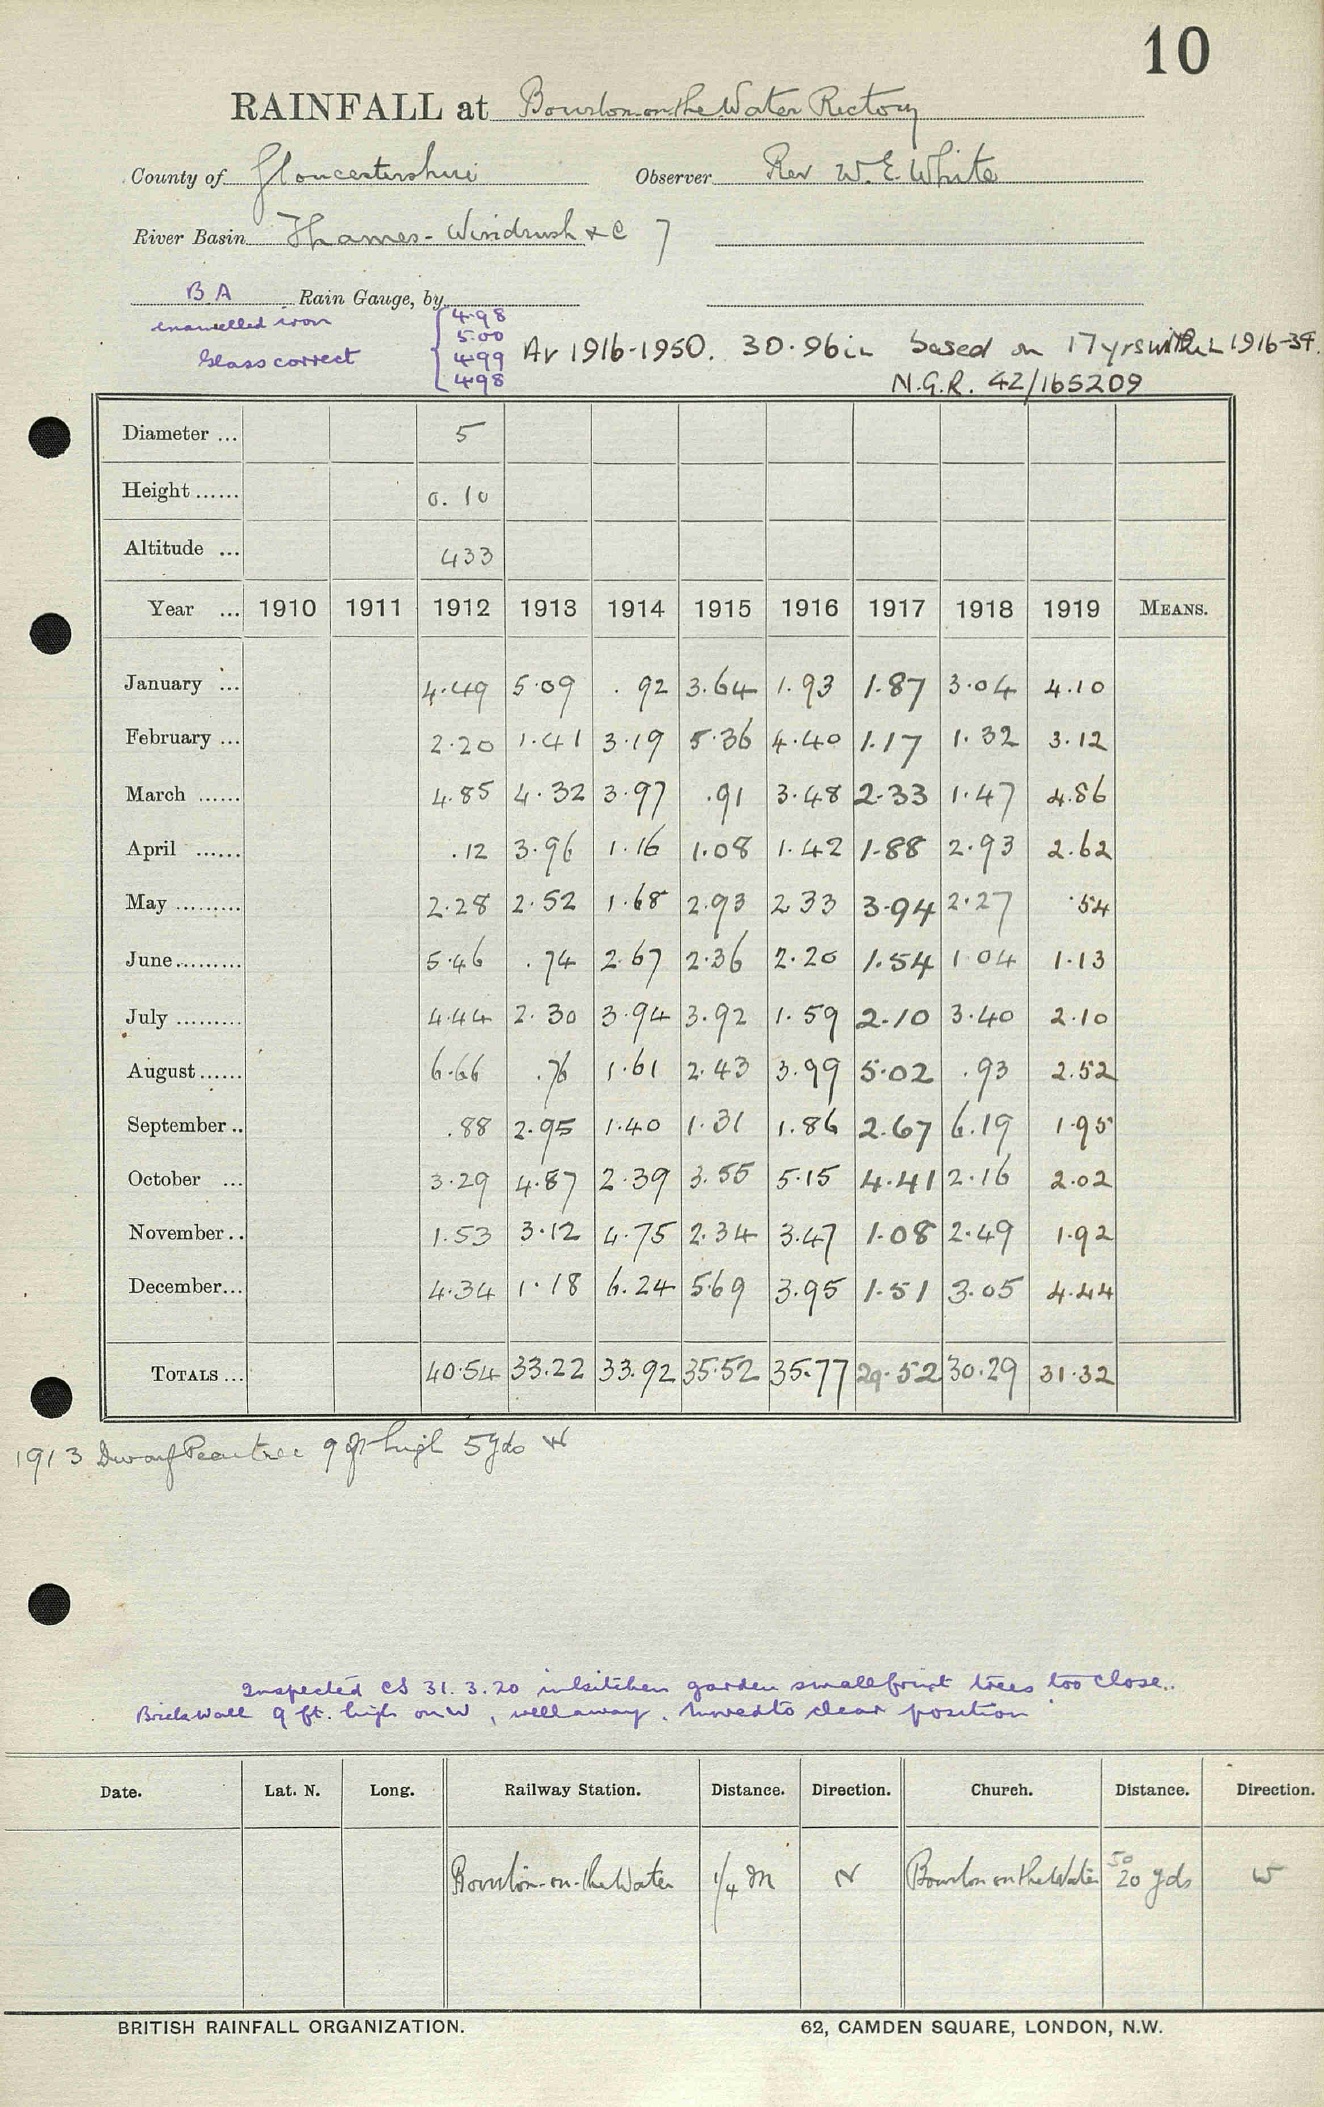 10
RAINFALL at Bourton-on-the-Water Rectory
County of Gloucestershire Observer Rev W. E. White
River Basin Thames - Windrush &c 7
B A Rain Gauge, by
enamelled iron
Glass correct
4.98
5.00
4.99
4.98
Av 1916-1950. 30.96in based on 17 yrs 1916-34.
N.G.R. 42/165209
Diameter ... 5
Height ...... 0.10
Altitude ... 433
Year ... 1910 1911 1912 1913 1914 1915 1916 1917 1918 1919 MEANS.
January ... 4.49 5.09 .92 3.64 1.93 1.87 3.04 4.10
February ... 2.20 1.41 3.19 5.36 4.40 1.17 1.32 3.12
March ...... 4.85 4.32 3.97 .91 3.48 2.33 1.47 4.86
April ...... .12 3.96 1.16 1.08 1.42 1.88 2.93 2.62
May ......... 2.28 2.52 1.68 2.93 2.33 3.94 2.27 .54
June......... 5.46 .74 2.67 2.36 2.20 1.54 1.04 1.13
July ......... 4.44 2.30 3.94 3.92 1.59 2.10 3.40 2.10
August...... 6.66 .76 1.61 2.43 3.99 5.02 .93 2.52
September.. .88 2.95 1.40 1.31 1.86 2.67 6.19 1.95
October ... 3.29 4.87 2.39 3.55 5.15 4.41 2.16 2.02
November.. 1.53 3.12 4.75 2.34 3.47 1.08 2.49 1.92
December... 4.34 1.18 6.24 5.69 3.95 1.51 3.05 4.44
TOTALS ... 40.54 33.22 33.92 35.52 35.77 29.52 30.29 31.32
1913 Dwarf Peartree 9 ft high 5 yds W
Inspected CS 31.3.20 in kitchen garden small fruit trees too close.
Brick wall 9 ft. high on W, well away. Moved to clear position
Date. Lat. N. Long. Railway Station. Distance. Direction. Church. Distance. Direction.
50
Bourton-on-the-Water 1/4 m N Bourton on the Water 20 yds W
BRITISH RAINFALL ORGANIZATION. 62, CAMDEN SQUARE, LONDON, N.W.